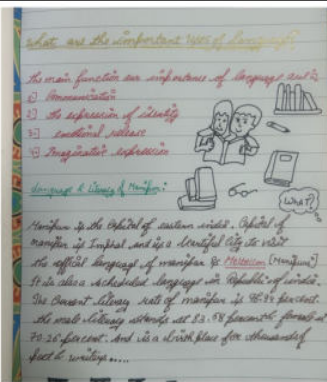 What are the important uses of language?
The main function our importance of language and is
1) Communication
2) The expression of identity
3) emotional release
4) Imaginative expression
language & literacy of Manipur:
WHAT?
Manipur is the Capital of eastern india. Capital of
manipur is Imphal and is a beautiful City to visit
the official language of manipur is Meteilon (Manipuri)
It is also a scheduled language in Republic of india.
The Current literacy rate of manipur is percent.
the male literacy stands at 83.58 percent & female at
70.26 percent. And is a birth place for thousands of
poet & writers.....